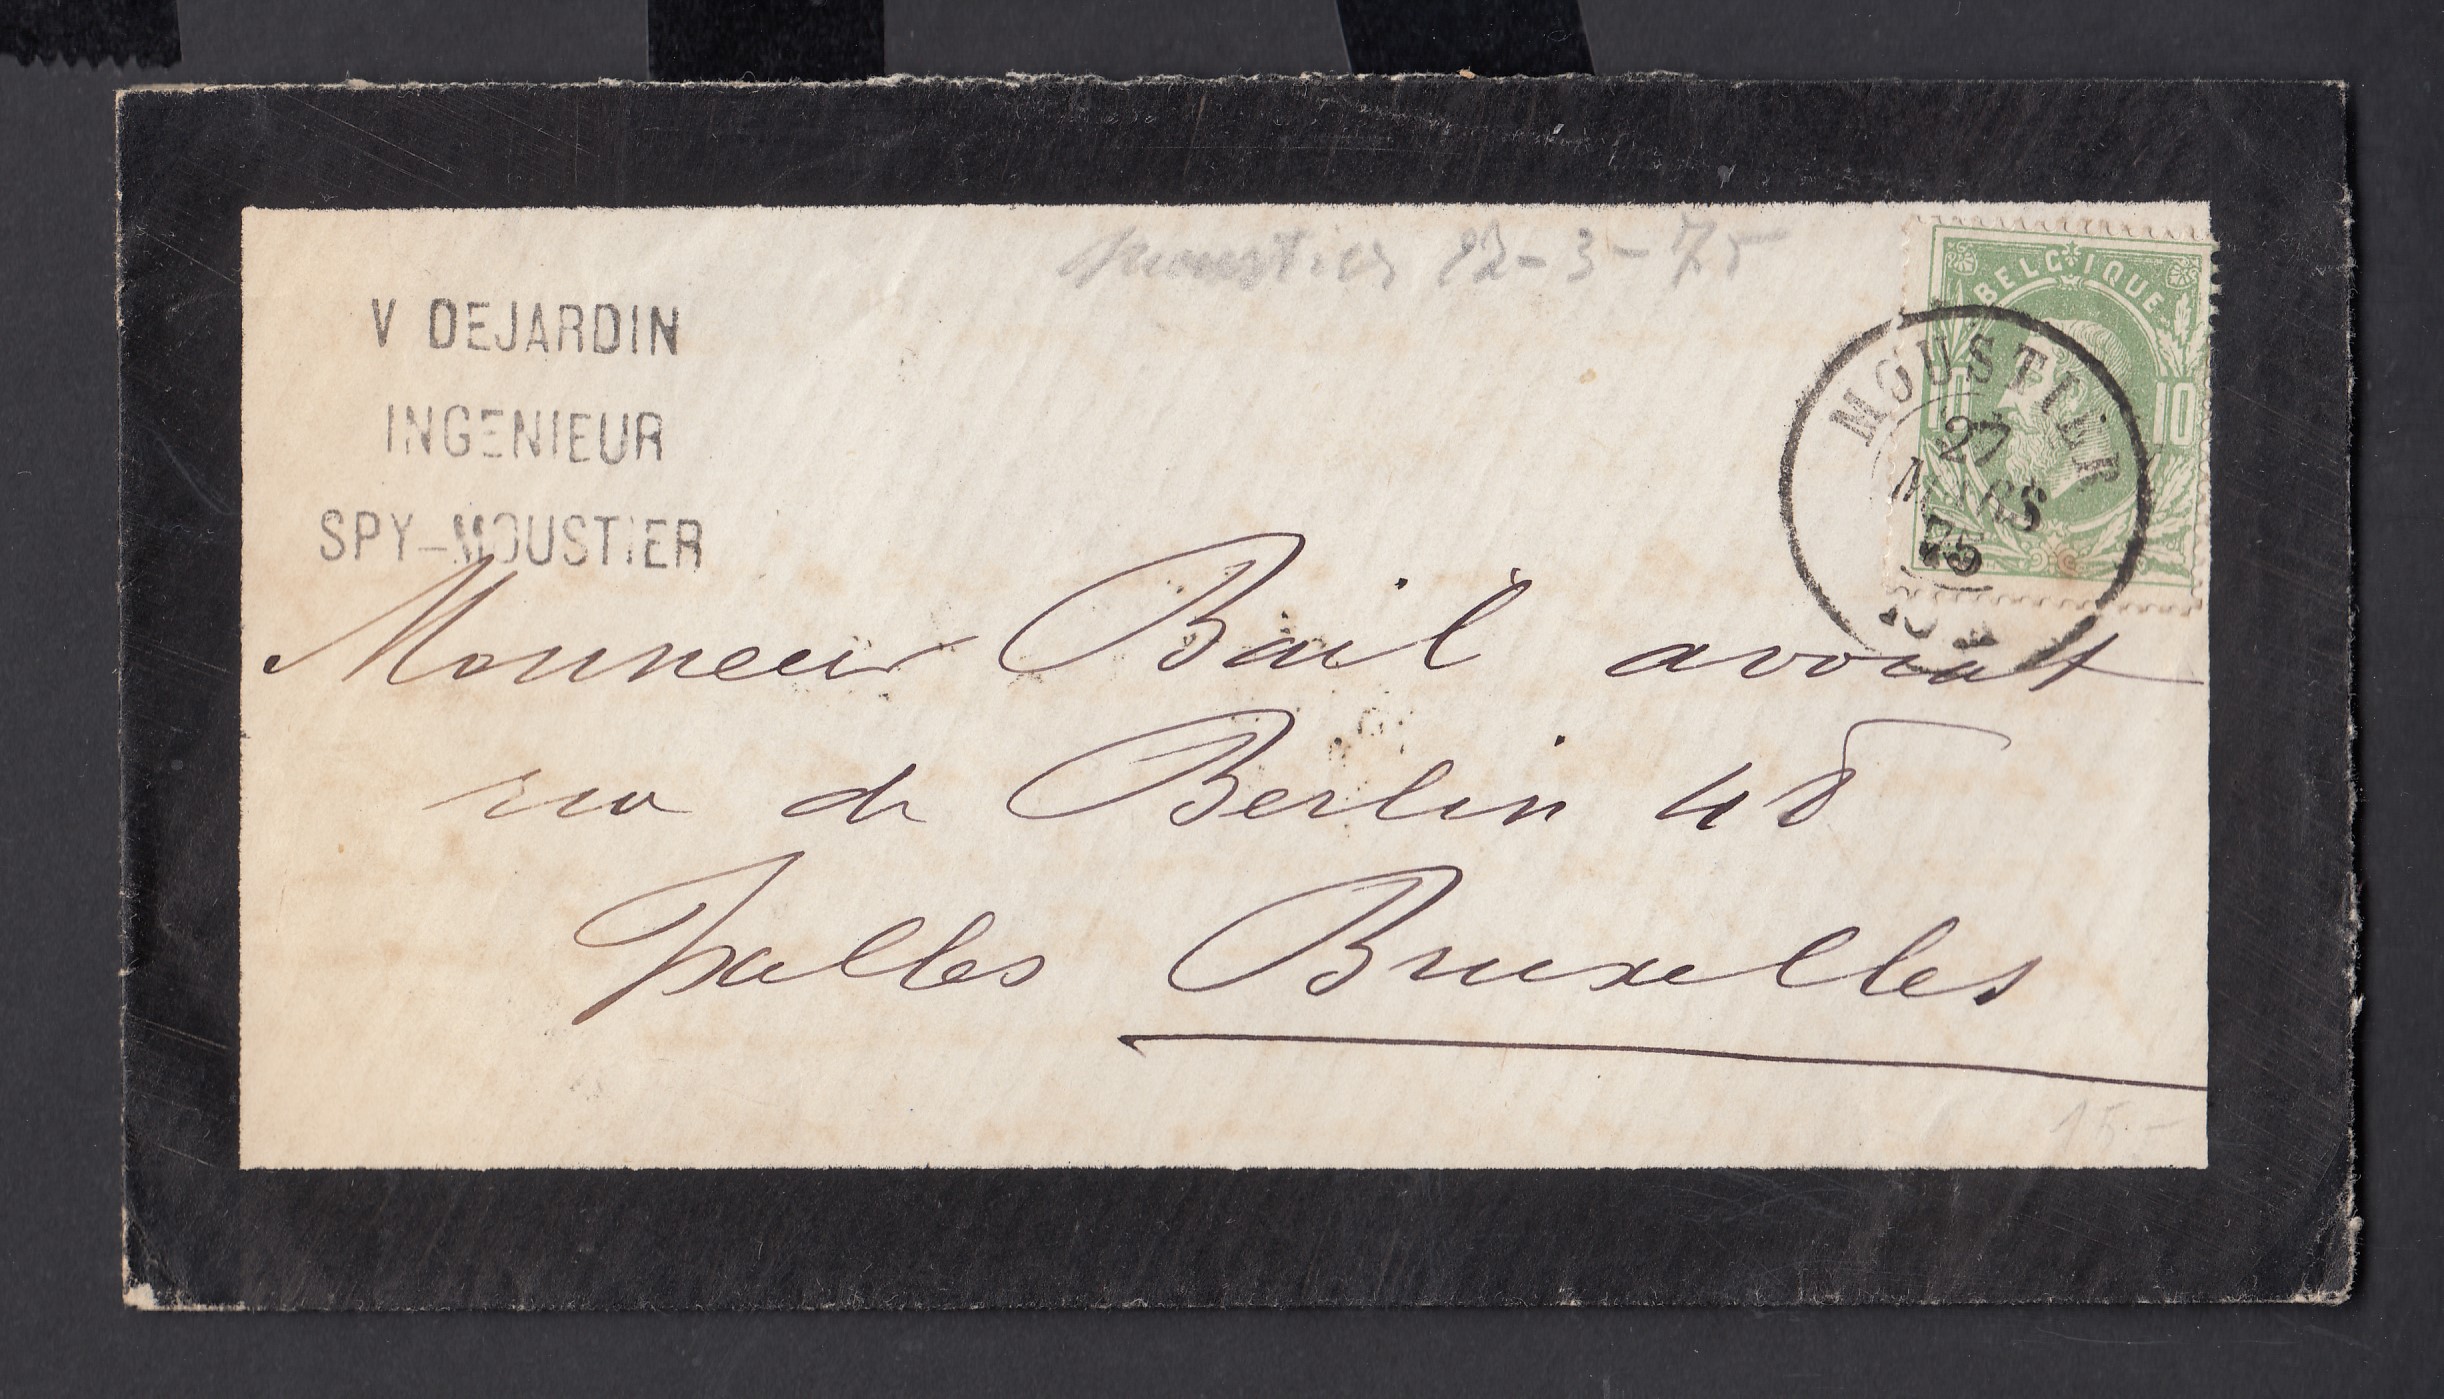 Moustier 22-3-75
V DEJARDIN
INGENIEUR
SPY-MOUSTIER
BELGIQUE
10
MOUSTIER
27
MARS
75
Monsieur Bail avocat
rue de Berlin 48
Ixelles Bruxelles
15-